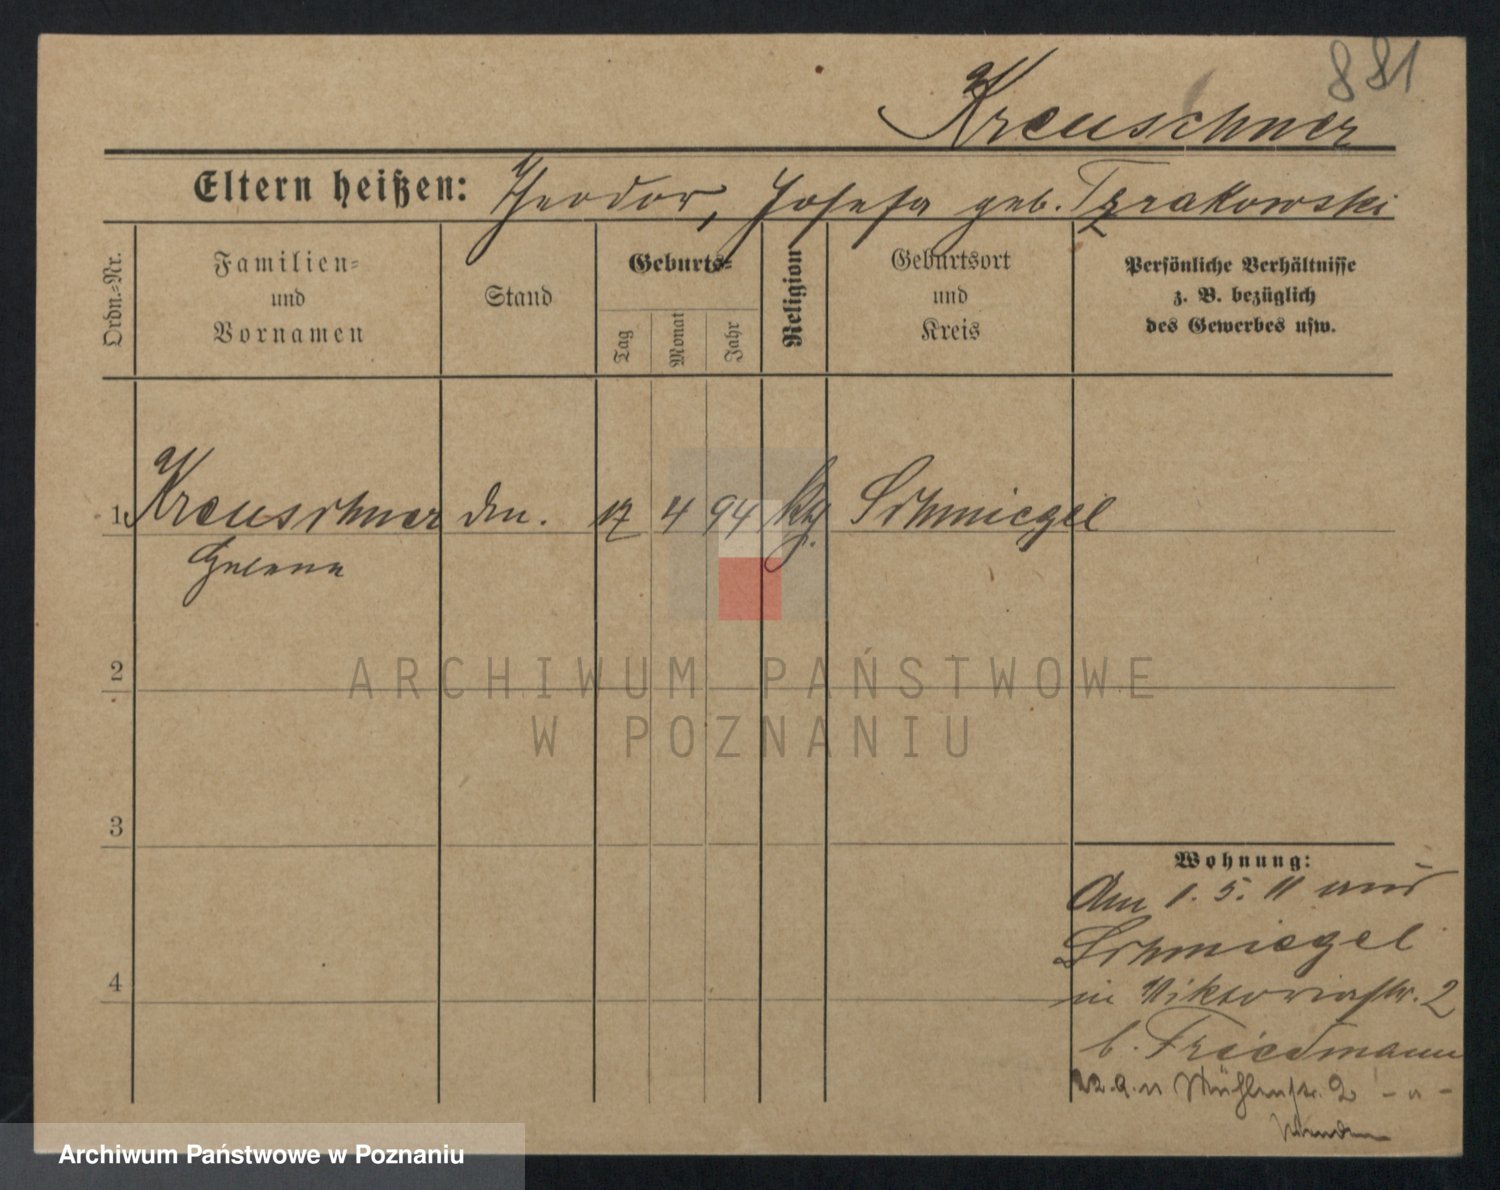 881
Kreuschner
Eltern heißen: Theodor, Josefa geb. Tzrakowski
Ordn.=Nr.
Familien=
und
Vornamen
Stand
Geburts=
Tag
Monat
Jahr
Religion
Geburtsort
und
Kreis
Persönliche Verhältnisse
z. B. bezüglich
des Gewerbes usw.
1 Kreuschner 17 4 94 kth. Schmiegel
Helene
2
ARCHIWUM PAŃSTWOWE
W POZNANIU
3
Wohnung:
Am 1. 5. 11 aus
Schmiegel
in Viktoriastr. 2
4
b. Friedmann
22. 9. 11 Mühlenstr. 2 - " -
Archiwum Państwowe w Poznaniu